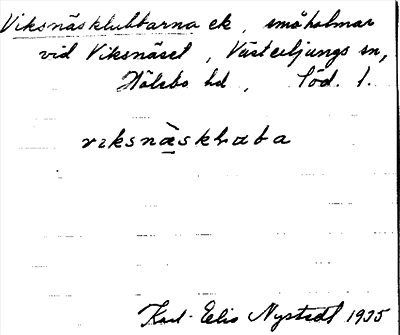 Viksnäsklubbarna ek, småholmar
vid Viksnäset, Västerljungs sn,
Hölebo hd, Söd. l.
viksnàskhaba
Karl-Eelis Nystedt 1935